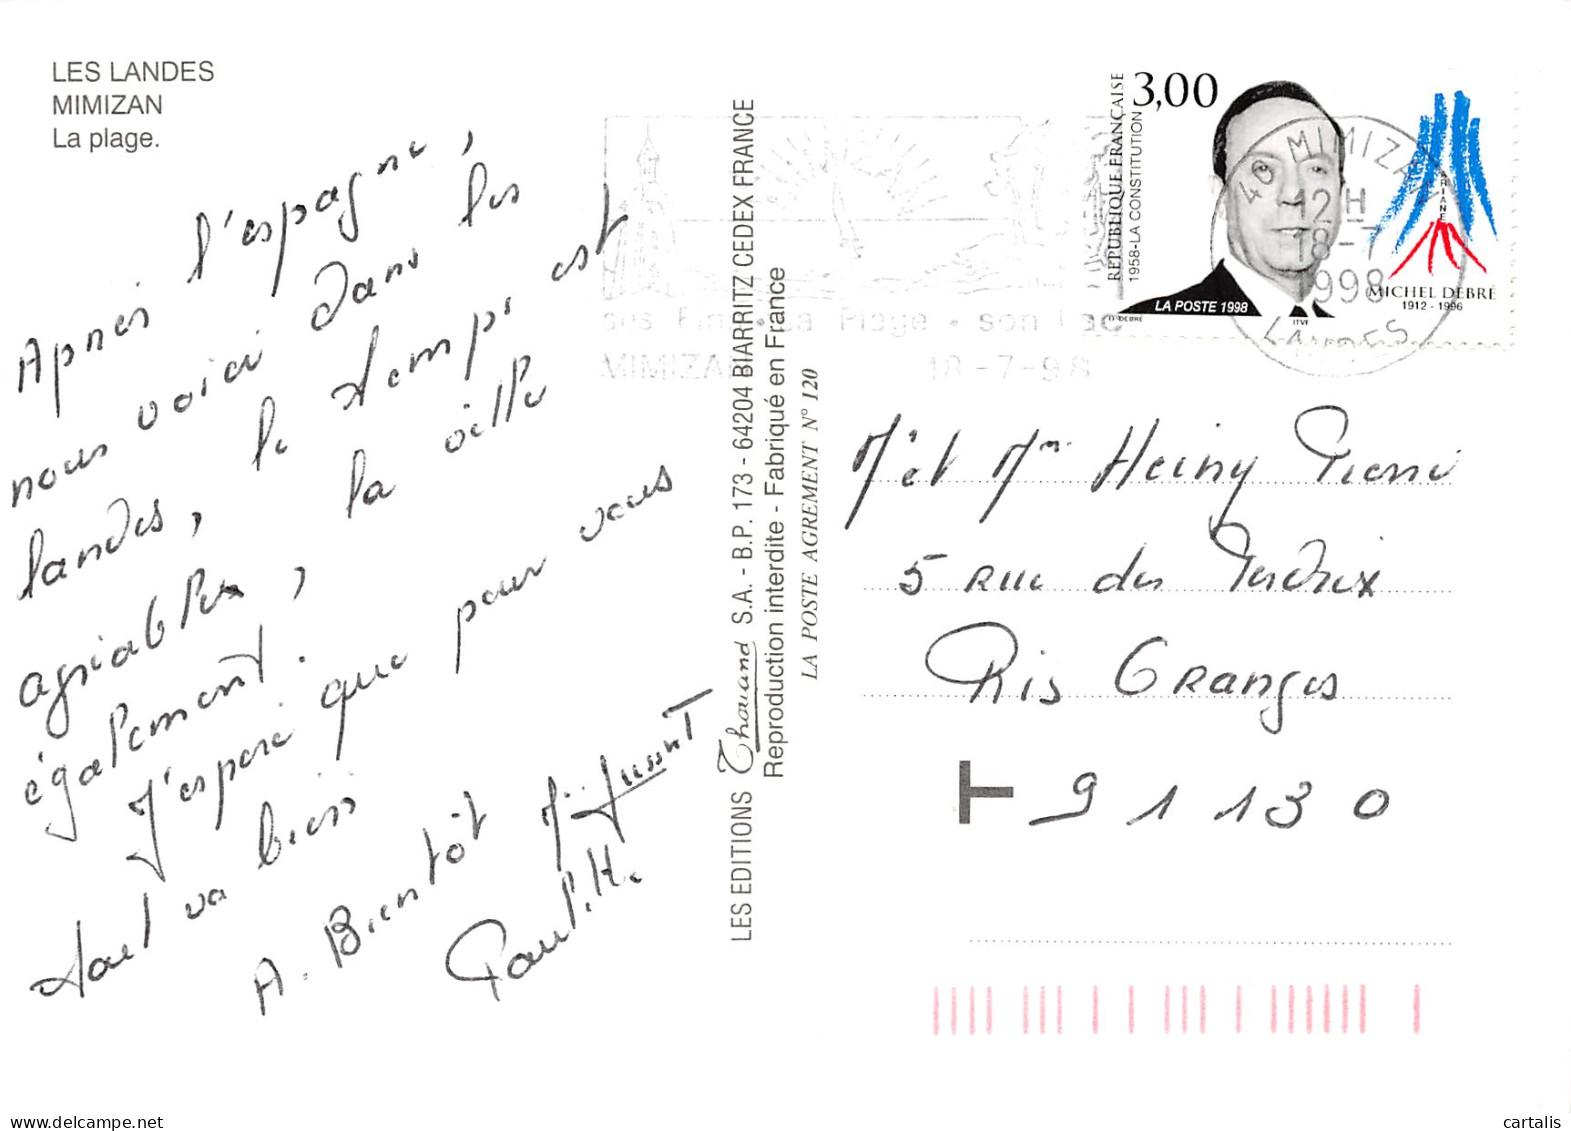 LES LANDES
MIMIZAN
La plage.
Après l'espagne,
nous voici dans les
landes, le temps est
agréable, la ville
également.
J'espère que pour vous
tout va bien
A. Bientôt
Paul.H.
LES EDITIONS Thouand S.A. - B.P. 173 - 64204 BIARRITZ CEDEX FRANCE
Reproduction interdite - Fabriqué en France
LA POSTE AGREMENT N° 120
ses Pins • sa Plage • son Lac
MIMIZAN 18-7-98
RÉPUBLIQUE FRANÇAISE
1958-LA CONSTITUTION
3,00
LA POSTE 1998
D. DEBRÉ
ITVF
ARIANE
MICHEL DEBRÉ
1912 - 1996
40 MIMIZAN
12 H
18-7
1998
LANDES
Mr et Mme Heiny Pierre
5 Rue des Perdrix
Ris Oranges
T 91130
cartalis